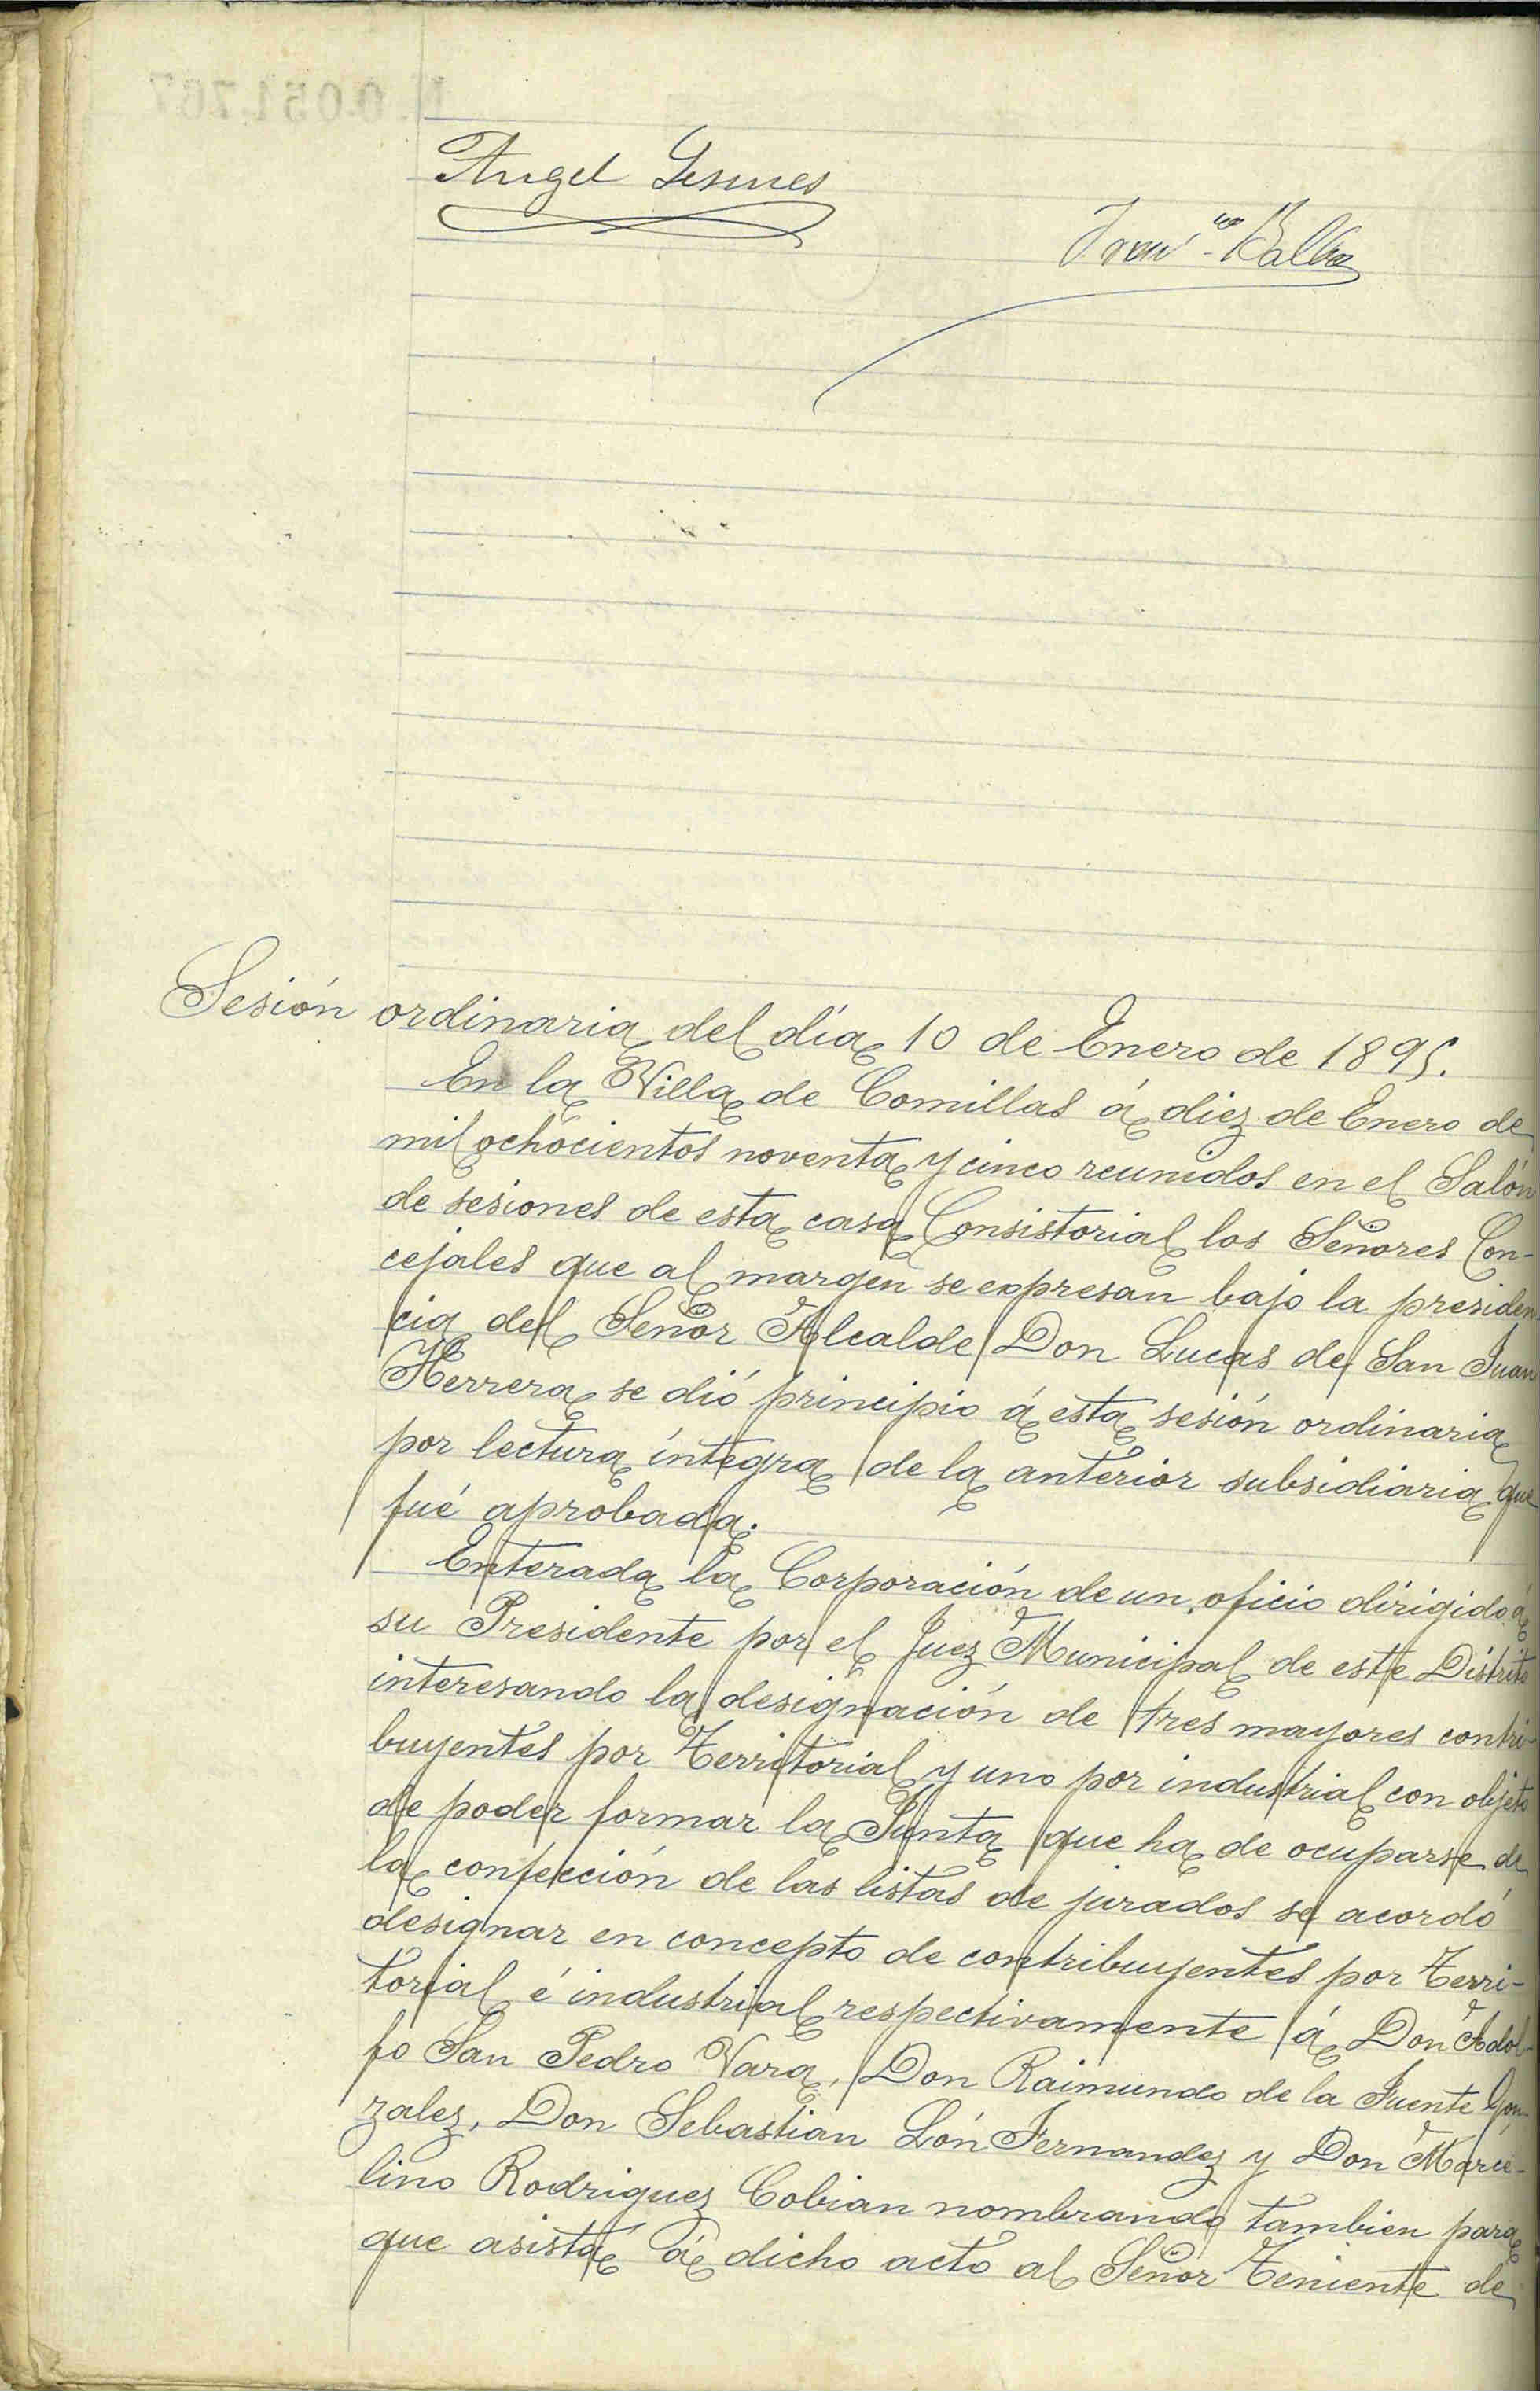 Angel
Fran.co Balbas
Sesión ordinaria del día 10 de Enero de 1895.
En la Villa de Comillas á diez de Enero de
mil ochocientos noventa y cinco reunidos en el Salón
de sesiones de esta casa Consistorial los Señores Con-
cejales que al margen se expresan bajo la presiden-
cia del Señor Alcalde Don Lucas de San Juan
Herrera se dió principio á esta sesión ordinaria
por lectura íntegra de la anterior subsidiaria que
fué aprobada.
Enterada la Corporación de un oficio dirigido á
su Presidente por el Juez Municipal de este Distrito
interesando la designación de tres mayores contri-
buyentes por Territorial y uno por industrial con objeto
de poder formar la Junta que ha de ocuparse de
la confección de las listas de jurados se acordó
designar en concepto de contribuyentes por Terri-
torial é industrial respectivamente á Don Adol-
fo San Pedro Vara, Don Raimundo de la Fuente Gon-
zalez, Don Sebastian Lón Fernandez y Don Marce-
lino Rodriguez Cobian nombrando tambien para
que asista á dicho acto al Señor Teniente de